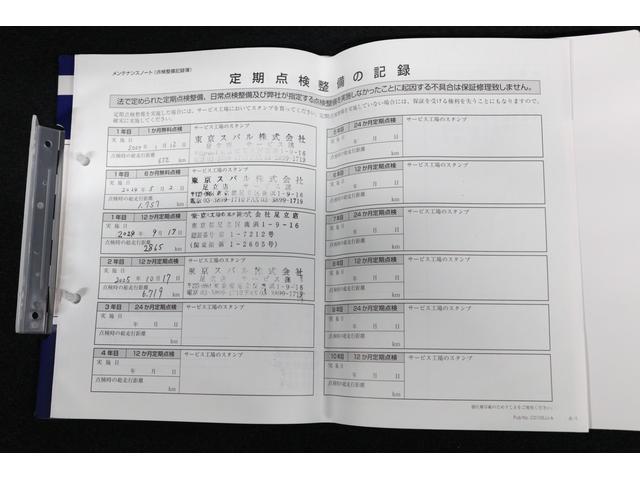 メンテナンスノート(点検整備記録簿)
定期点検整備の記録
法で定められた定期点検整備、日常点検整備及び弊社が指定する点検整備を実施しなかったことに起因する不具合は保証修理致しません。
定期点検整備を実施した場合には、サービス工場においてスタンプを貰ってください。定期点検整備を実施していない場合には、保証を受ける権利を失うことにもなりますので、
確実に実施してください。
1年目 1か月無料点検 サービス工場のスタンプ
実施日 2024年1月12日
東京スバル株式会社
点検時の総走行距離 672 km
1年目 6か月無料点検 サービス工場のスタンプ
実施日 2024年5月2日
東京スバル株式会社
足立店 サービス課
電話03-3899-1719
点検時の総走行距離 1,757 km
1年目 12か月定期点検 サービス工場のスタンプ
実施日 2024年 月17日
東京スバル株式会社足立店
1-9-16
認証番号 1-7212号
(指定番号 1-2605号)
点検時の総走行距離 2865 km
2年目 12か月定期点検 サービス工場のスタンプ
実施日 2025年10月17日
東京スバル株式会社
足立店 サービス課
1-9-16
点検時の総走行距離 6,719 km
3年目 24か月定期点検 サービス工場のスタンプ
実施日 年 月 日
点検時の総走行距離 km
4年目 12か月定期点検 サービス工場のスタンプ
実施日 年 月 日
点検時の総走行距離 km
24か月定期点検 サービス工場のスタンプ
年 月 日
km
12か月定期点検 サービス工場のスタンプ
年 月 日
km
7年目 24か月定期点検 サービス工場のスタンプ
年 月 日
km
12か月定期点検 サービス工場のスタンプ
年 月 日
km
9年目 24か月定期点検 サービス工場のスタンプ
実施日 年 月 日
点検時の総走行距離 km
10年目 12か月定期点検 サービス工場のスタンプ
実施日 年 月 日
点検時の総走行距離 km